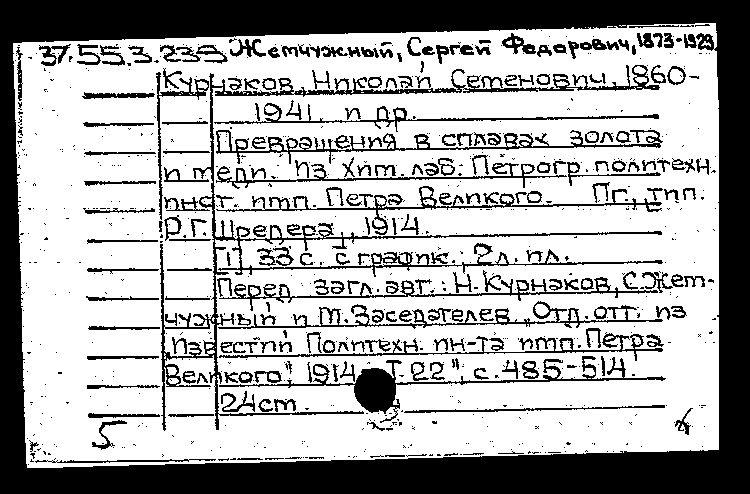 37.55.3.239 Жемчужный, Сергей Федорович, 1873-1929.
Курнаков, Николай Семенович, 1860-
1941. и др.
Превращения в сплавах золота
и меди. Из Хим. лаб. Петрогр. политехн.
инст. имп. Петра Великого. Пг., тип.
Р.Г. Шредера, 1914.
[1], 33 с. с график., 2 л. ил.
Перед загл. авт.: Н. Курнаков, С. Жем-
чужный и М. Заседателев. „Отд. отт. из
„Известий Политехн. ин-та имп. Петра
Великого", 1914. Т. 22", с. 485-514.
24 см.
5